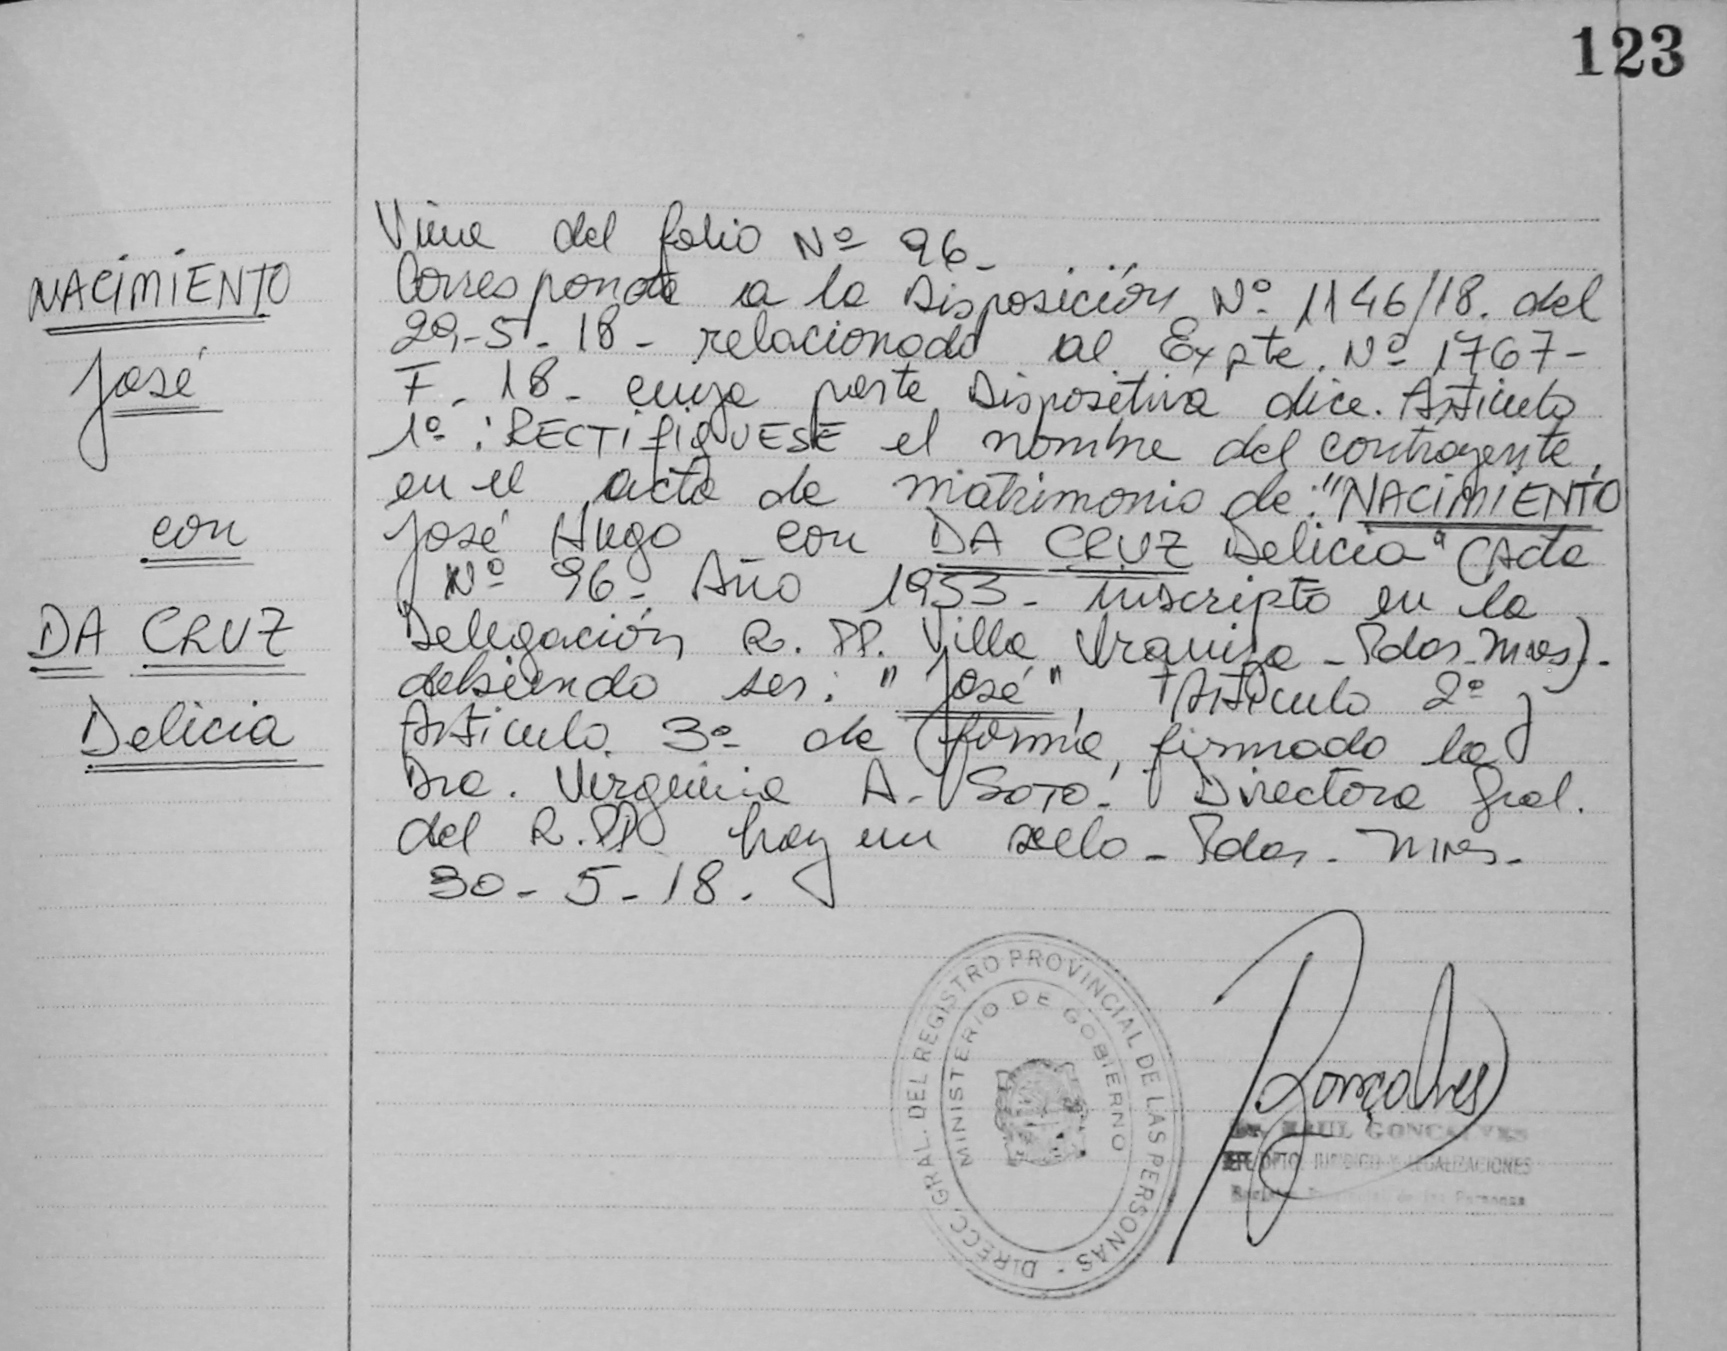 123
NACIMIENTO
José
con
DA CRUZ
Delicia
Viene del folio Nº 96-
Corresponde a la Disposición Nº 1146/18. del
29-5-18- relacionado al Expte. Nº 1767-
F-18- cuya parte Dispositiva dice. Artículo
1º: RECTIFIQUESE el nombre del contrayente,
en el acta de matrimonio de: "NACIMIENTO
José Hugo con DA CRUZ Delicia" (Acta
Nº 96- Año 1953- inscripto en la
Delegación R. PP. Villa Urquiza - Pdas-Mnes)-
debiendo ser: "José", Artículo 2º y
Artículo 3º de forma, firmado la
Dra. Virginia A. SOTO- Directora Gral.
del R.PP hay un sello- Pdas- Mnes-
30-5-18.
DIRECC. GRAL. DEL REGISTRO PROVINCIAL DE LAS PERSONAS -
MINISTERIO DE GOBIERNO
Gonçalves
Dr. RAUL GONCALVES
JEFE DPTO. JURIDICO Y LEGALIZACIONES
Registro Provincial de las Personas